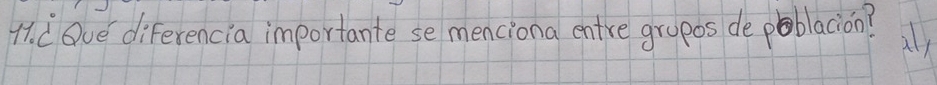 11.¿Qué diferencia importante se menciona entre grupos de población?